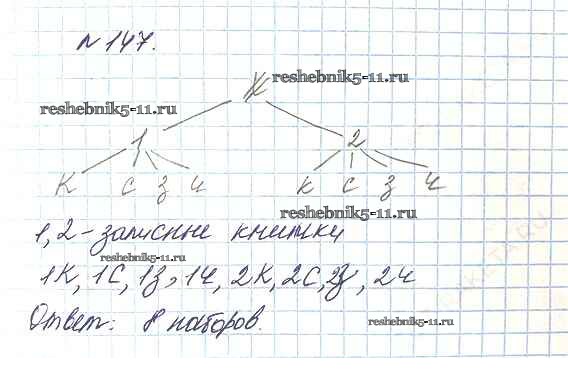 №147.
К
reshebnik5-11.ru
reshebnik5-11.ru
1 2
К С З Ч К С З Ч
reshebnik5-11.ru
1,2-записные книжки
reshebnik5-11.ru
1К, 1С, 1З, 1Ч, 2К, 2С, 2З, 2Ч
Ответ: 8 наборов.
reshebnik5-11.ru